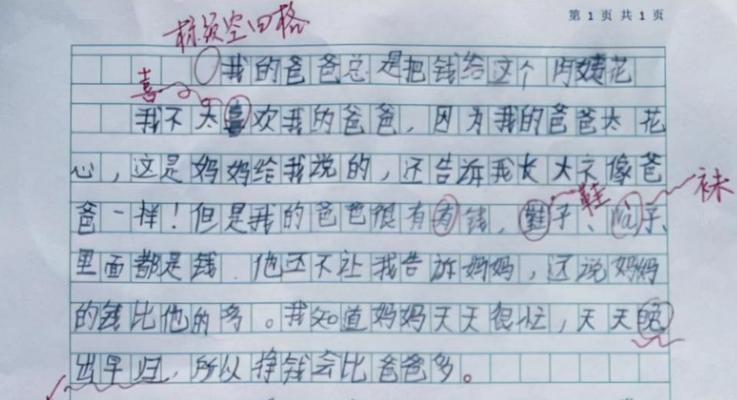 第 1 页 共 1 页
标题空四格
我的爸爸总是把钱给这个阿姨花
喜
我不太喜欢我的爸爸，因为我的爸爸太花
心，这是妈妈给我说的，还告诉我长大不像爸
爸一样！但是我的爸爸很有有钱，鞋子、袜子、
鞋
袜
里面都是钱．他还不让我告诉妈妈，还说妈妈
的钱比他的多。我知道妈妈天天很忙，天天晚
出早归，所以挣钱会比爸爸多。